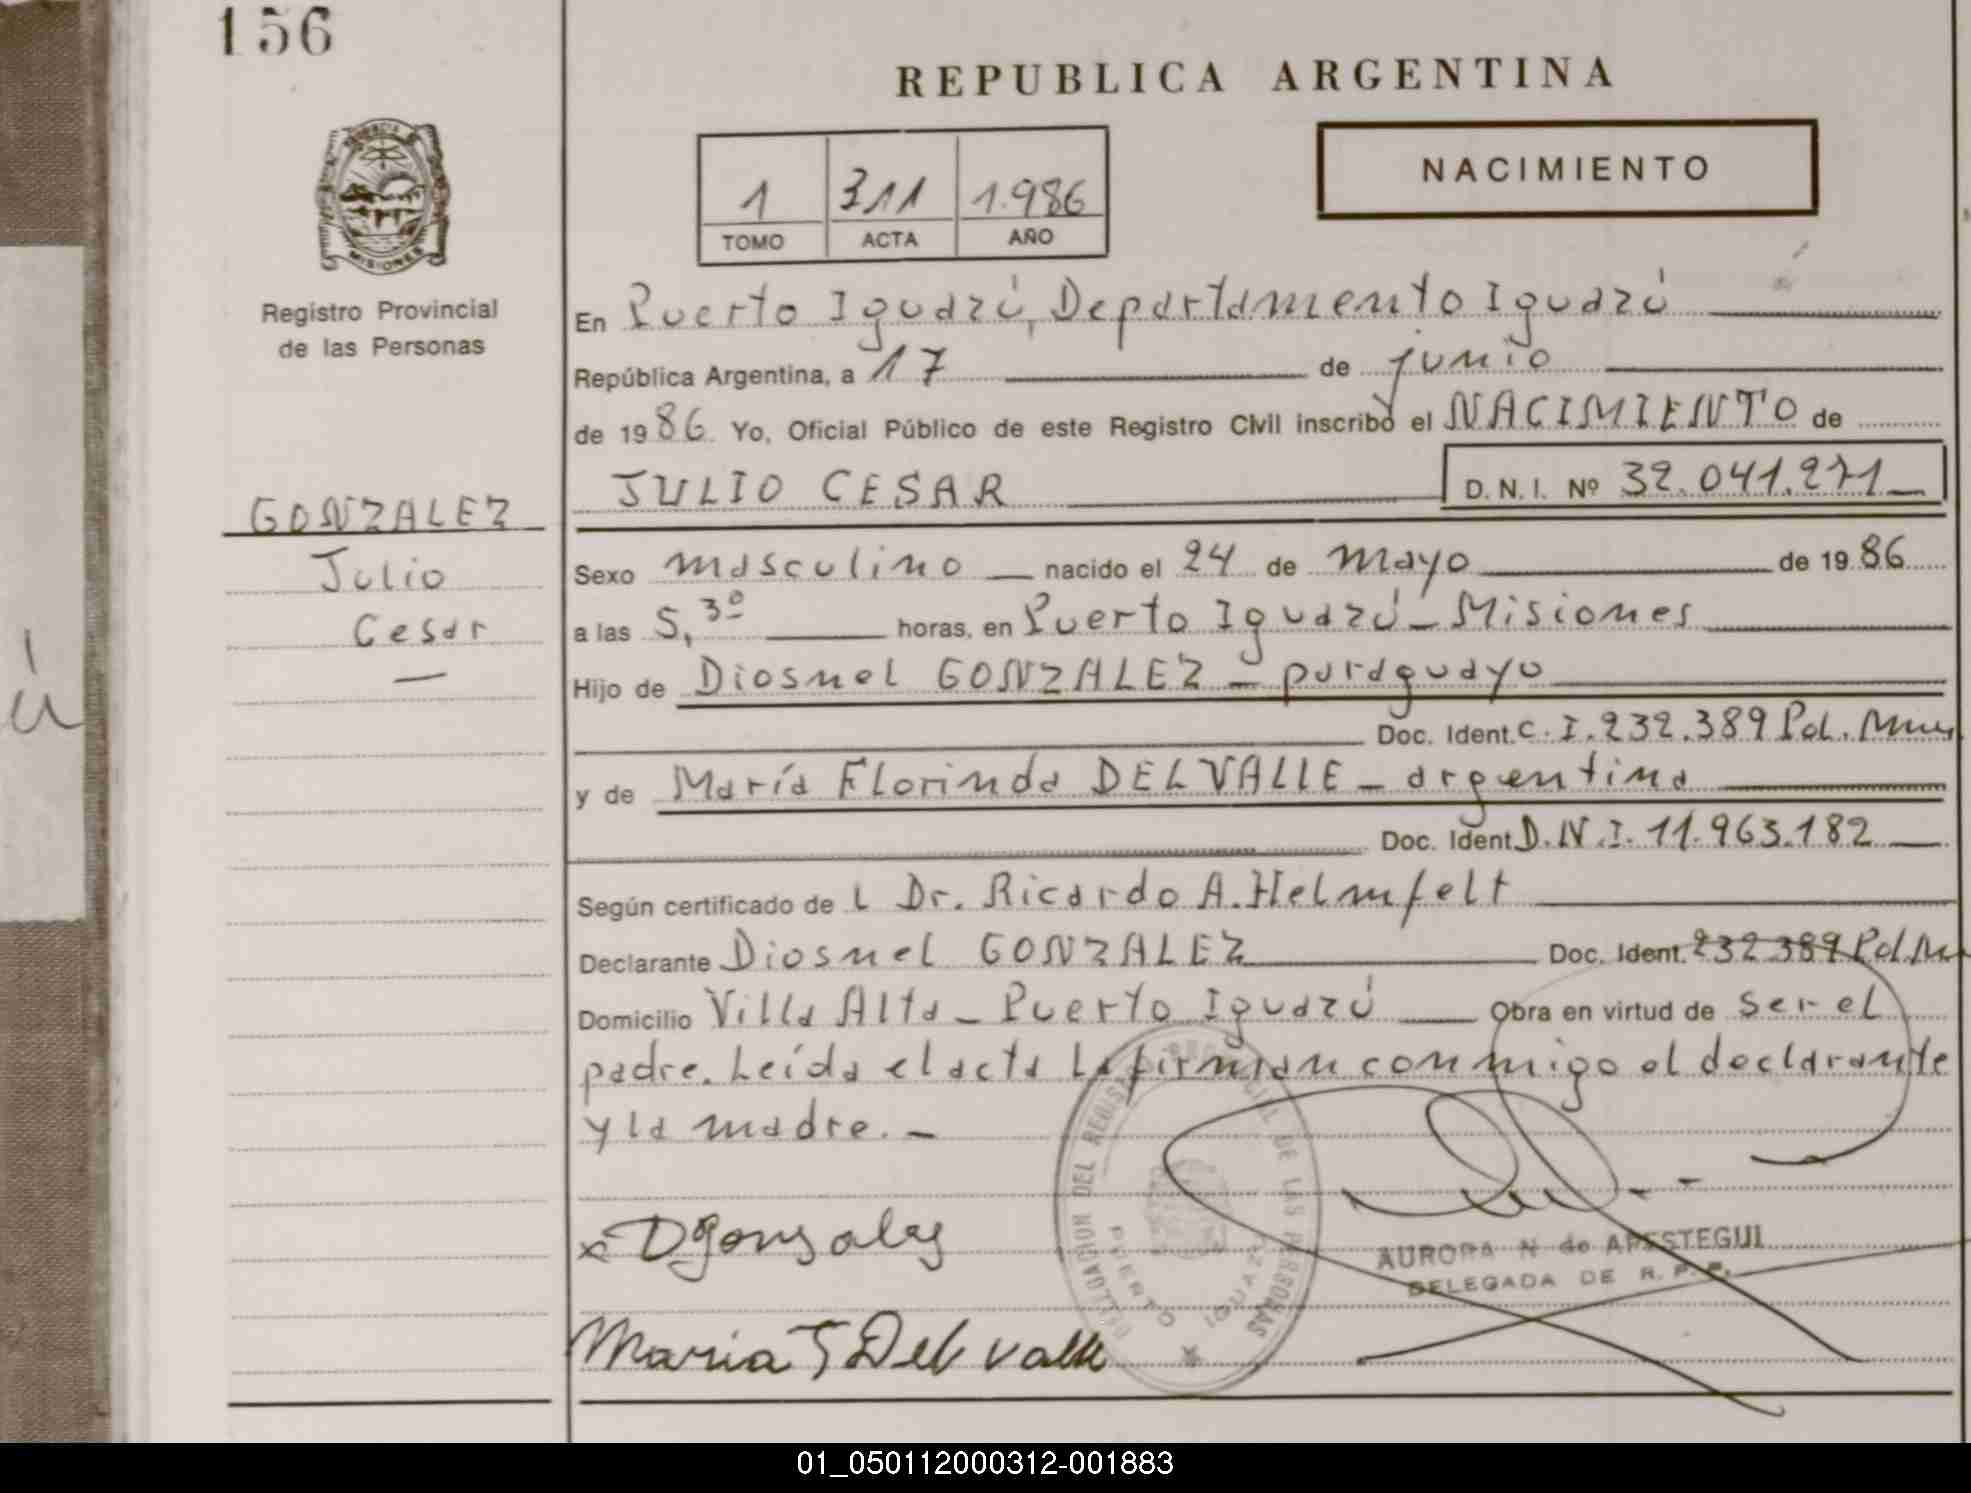 156
REPUBLICA ARGENTINA
1 311 1.986
TOMO ACTA AÑO
NACIMIENTO
PROVINCIA DE
MISIONES
Registro Provincial
de las Personas
GONZALEZ
Julio
Cesar
—
En Puerto Iguazú, Departamento Iguazú
República Argentina, a 17 de junio
de 1986. Yo, Oficial Público de este Registro Civil inscribo el NACIMIENTO de
JULIO CESAR D. N. I. Nº 32.041.271
Sexo masculino nacido el 24 de mayo de 1986
a las 5,30 horas, en Puerto Iguazú - Misiones
Hijo de Diosnel GONZALEZ - paraguayo
Doc. Ident. C.I. 232.389 Pol.
y de María Florinda DEL VALLE - argentina
Doc. Ident D.N.I. 11.963.182
Según certificado del Dr. Ricardo A. Helmfelt
Declarante Diosnel GONZALEZ Doc. Ident. 232 389 Pol.
Domicilio Villa Alta - Puerto Iguazú Obra en virtud de ser el
padre. Leída el acta la firman conmigo el declarante
y la madre. -
DELEGACION DEL REGISTRO PROVINCIAL DE LAS PERSONAS
PUERTO IGUAZU
x D gonzalez
AURORA N de APESTEGUI
DELEGADA DE R. P. P.
Maria F Del valle
01_050112000312-001883